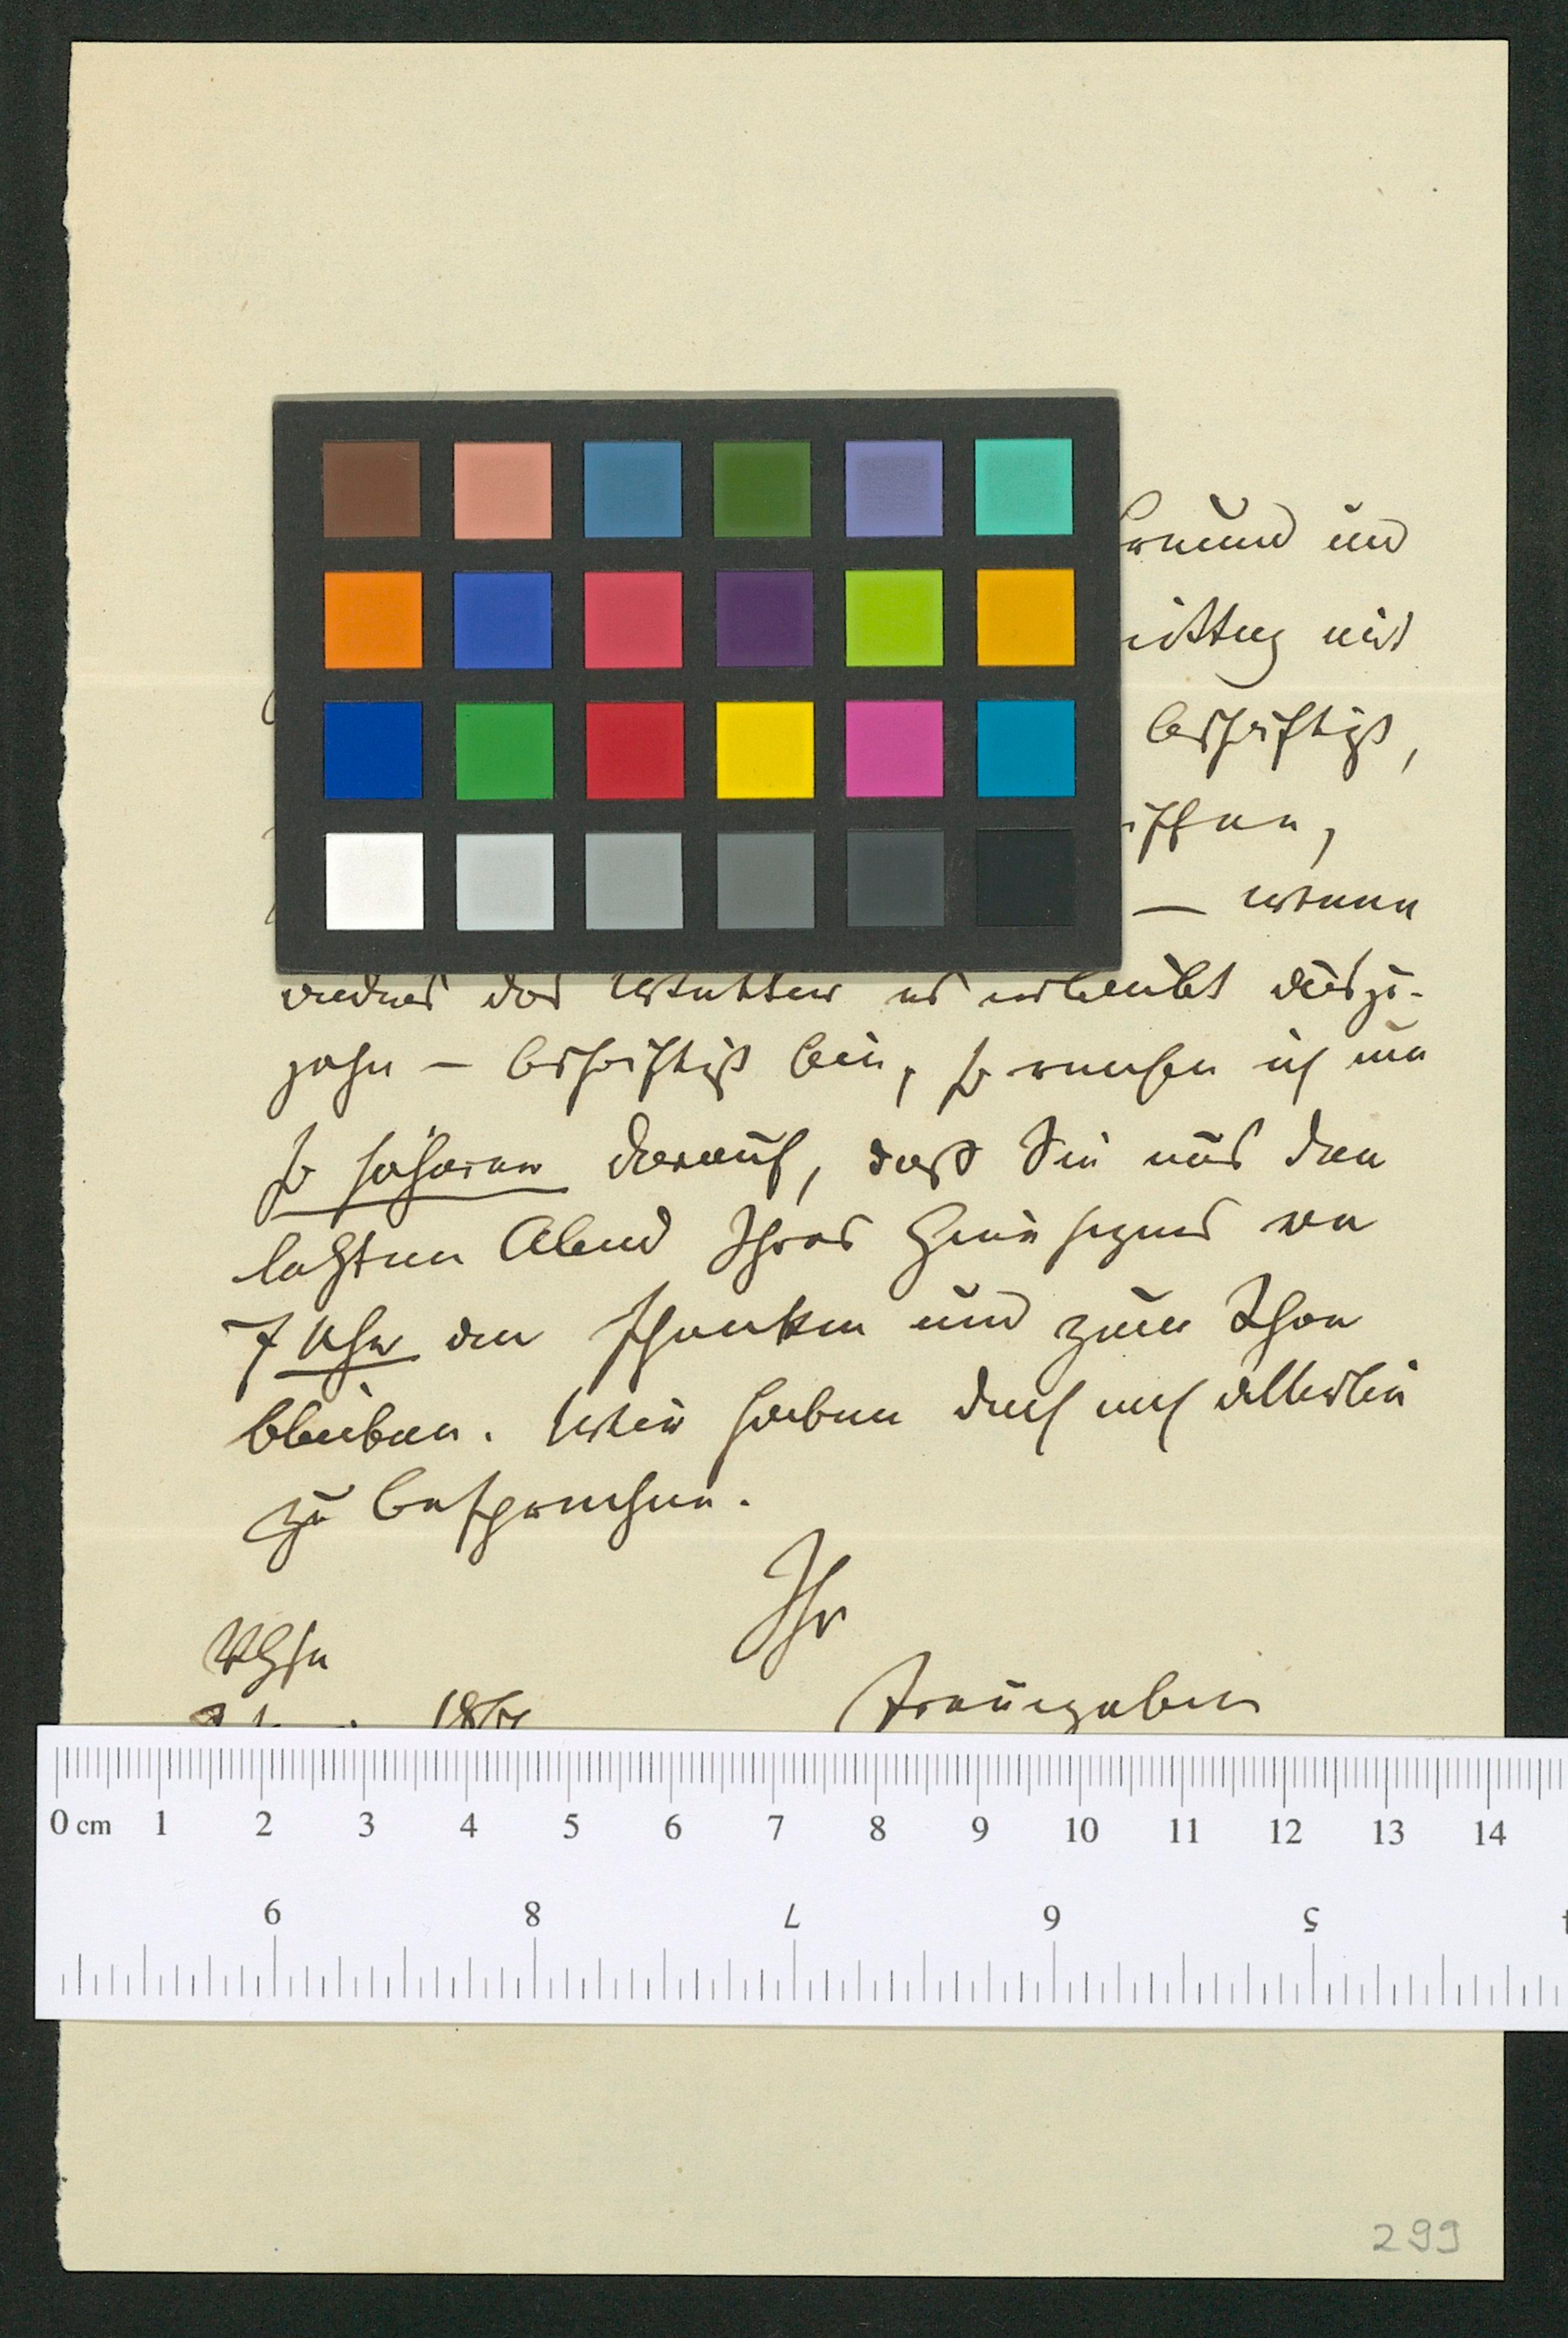 Freund und
mittag mit
beschäftigt,
— wenn
anders das Wetter es erlaubt auszu-
gehn — beschäftigt bin, so rechne ich um
so sicherer darauf, daß Sie uns den
letzten Abend Ihres Hierseins von
7 Uhr an schenken und zum Thee
bleiben. Wir haben doch noch allerlei
zu besprechen.
Ihr
Treuergebener
0 cm 1 2 3 4 5 6 7 8 9 10 11 12 13 14
9 8 7 6 5
299